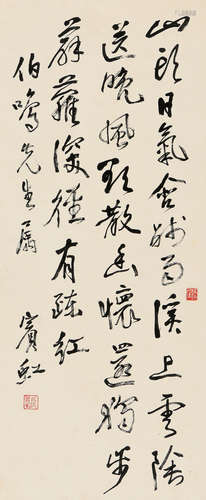 山頭日氣含殘雨溪上雲陰
送晚風欲散幽懷還獨步
薜蘿深徑有疏紅
伯鳴先生屬 賓虹